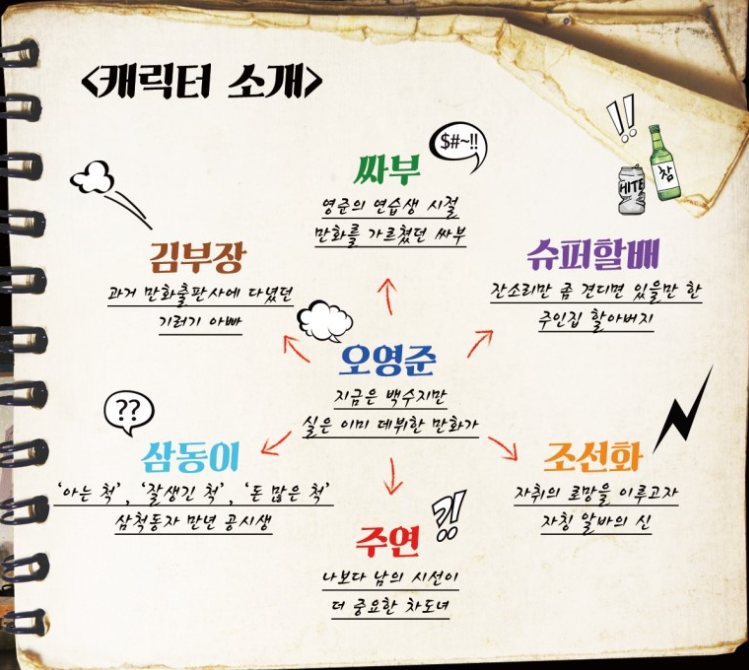 <캐릭터 소개>
$#~!!
싸부
영준의 연습생 시절
만화를 가르쳤던 싸부
!!
참
HITE
김부장
과거 만화출판사에 다녔던
기러기 아빠
슈퍼할배
잔소리만 좀 견디면 있을만 한
주인집 할아버지
오영준
지금은 백수지만
실은 이미 데뷔한 만화가
??
삼동이
'아는 척', '잘생긴 척', '돈 많은 척'
삼척동자 만년 공시생
조선화
자취의 로망을 이루고자
자칭 알바의 신
?!
주연
나보다 남의 시선이
더 중요한 차도녀